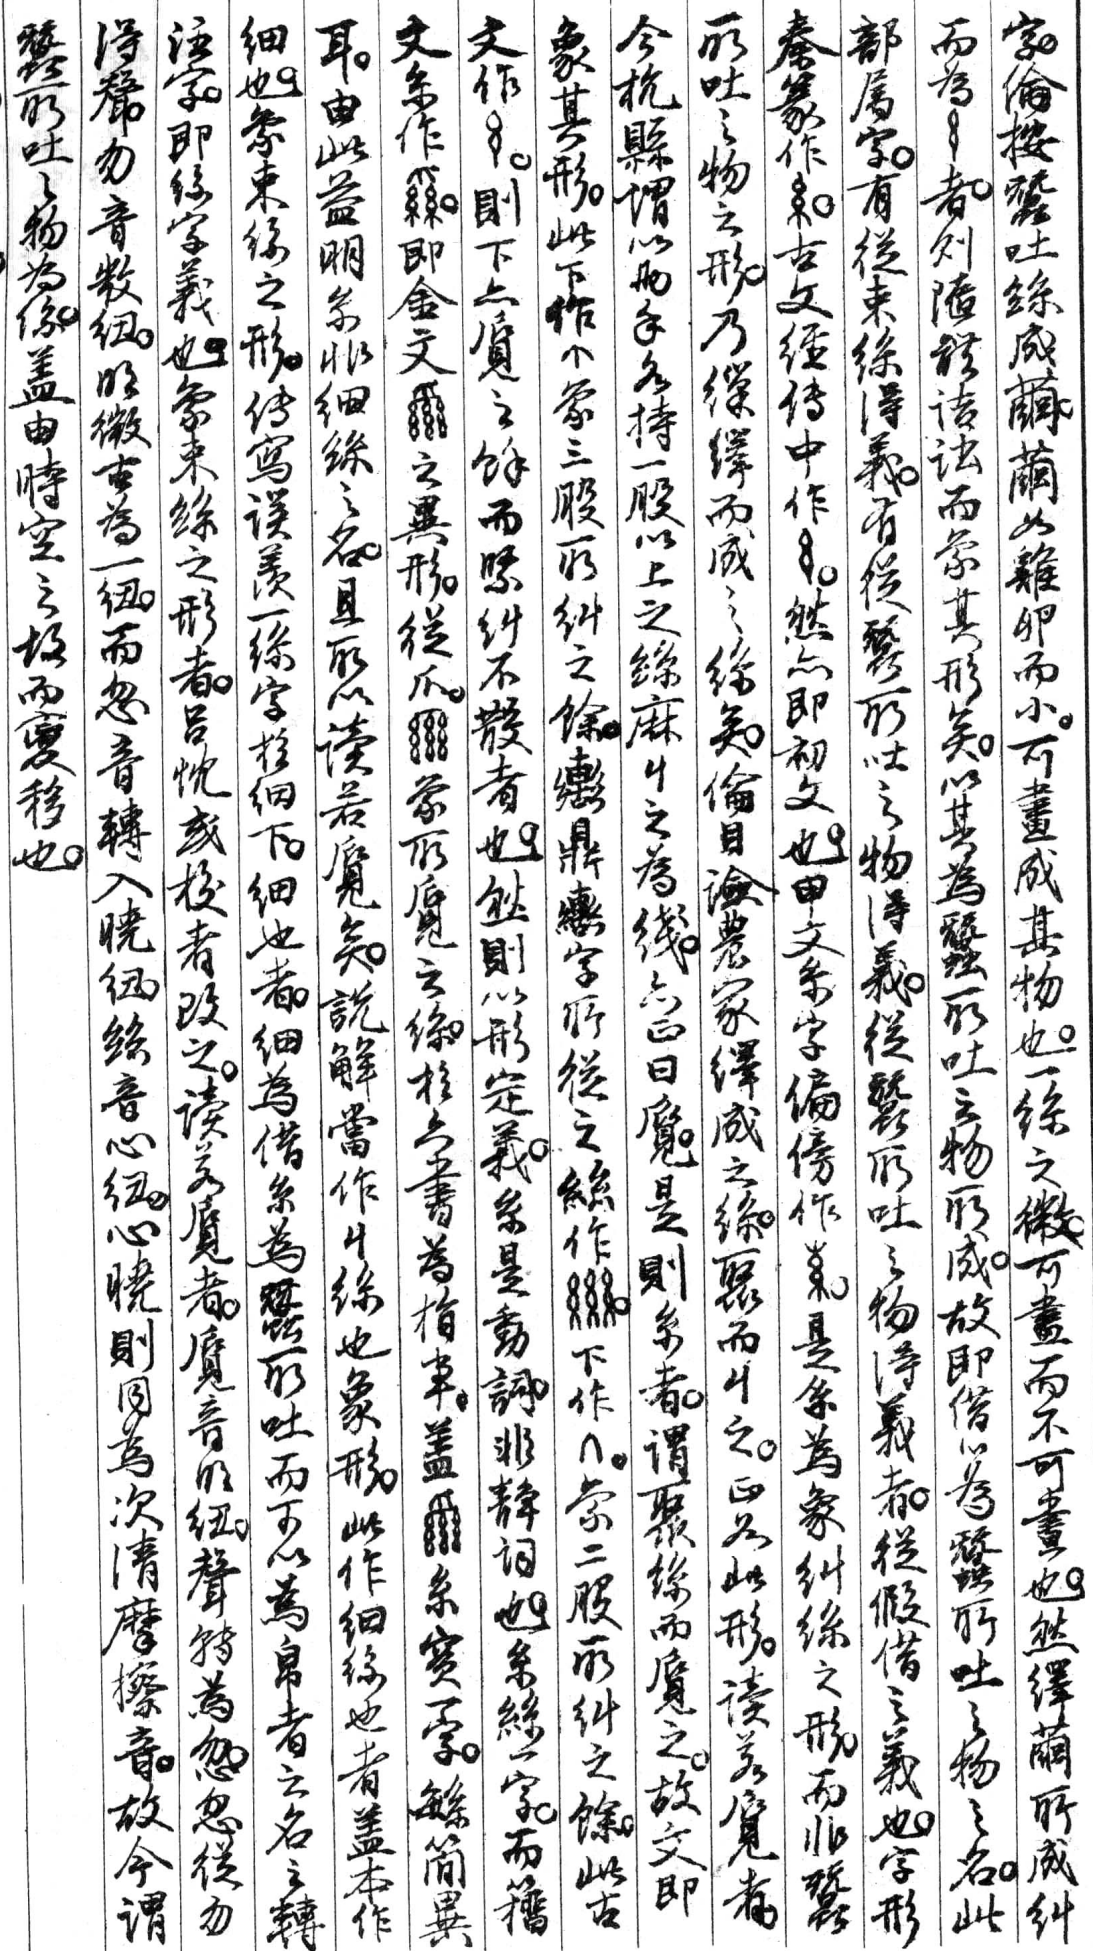 字。倫按蠶吐絲成繭。繭如雞卵而小。可畫成其物也。一絲之微。可畫而不可畫也。然繹繭所成糾
而為者。則隨體詰詘而象其形矣。以其為蠶所吐之物所成。故即借以為蠶所吐之物之名。此
部屬字。有從束絲得義。有從蠶所吐之物得義。從蠶所吐之物得義者。從假借之義也。字形
秦篆作糸。古文經傳中作。然亦即初文也。甲文糸字偏傍作。是糸為象糾絲之形。而非蠶
所吐之物之形。乃繅繹而成之絲矣。倫目譣農家繹成之絲。聚而丩之。正如此形。讀若覛者。
今杭縣謂以兩手各持一股以上之絲麻丩之為綫。亦正曰覛。是則糸者。謂聚絲而覛之。故文即
象其形。此下作象三股所糾之餘。鼎字所從之絲作。下作。象二股所糾之餘。此古
文作。則下亦覛之餘而緊糾不散者也。然則以形定義。糸是動詞。非靜詞也。糸絲一字。而籀
文糸作。即金文之異形。從爪。象所覛之絲。於六書為指事。蓋糸實一字。緐簡異
耳。由此益明糸非細絲之名。且所以讀若覛矣。說解當作丩絲也象形。此作細絲也者。蓋本作
細也。象束絲之形。傳寫誤羨一絲字於細下。細也者。細為借糸為蠶所吐而可以為帛者之名之轉
注字。即絲字義也。象束絲之形者。呂忱或校者改之。讀若覛者。覛音明紐。聲轉為忽。忽從勿
得聲。勿音敷紐。明微古為一紐。而忽音轉入曉紐。絲音心紐。心曉則同為次清摩擦音。故今謂
蠶所吐之物為絲。蓋由時空之故而變移也。